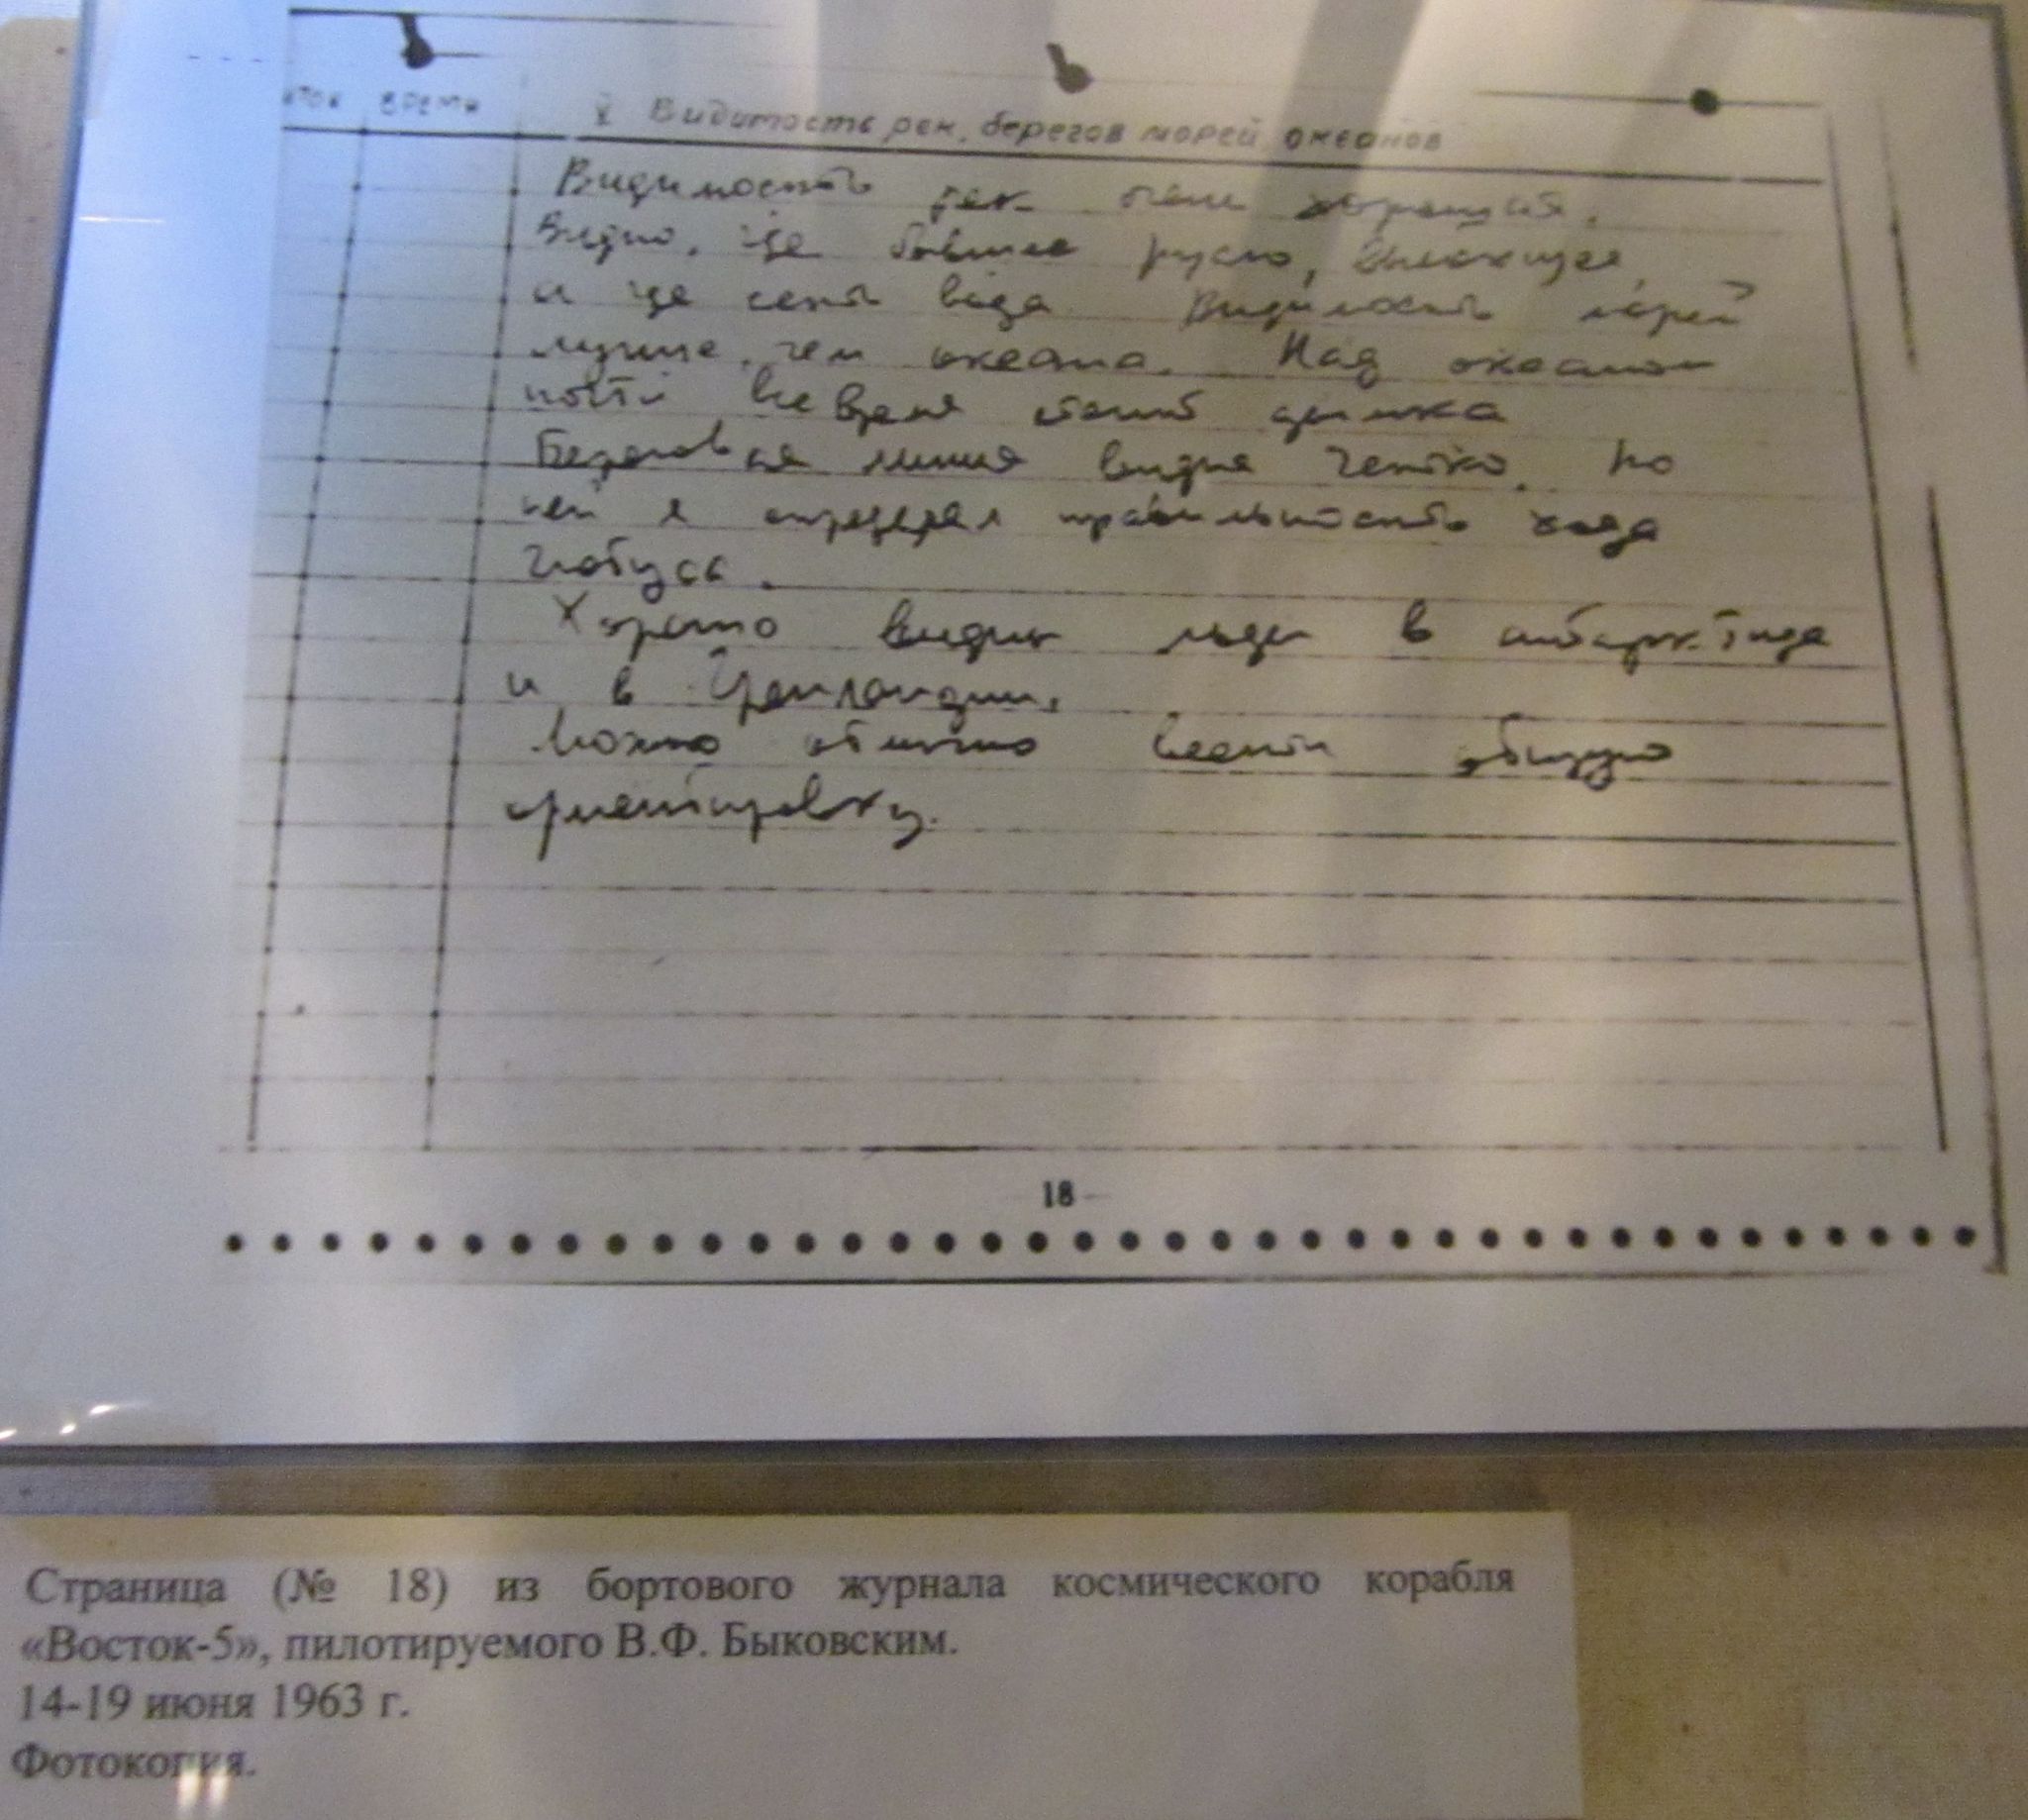 ВИТОК ВРЕМЯ X Видимость рек, берегов морей, океанов
Видимость рек очень хорошая.
Видно, где бывшее русло, высохшее,
и где есть вода. Видимость морей
лучше, чем океана. Над океаном
почти все время стоит дымка
Береговая линия видна четко. По
ней я определял правильность хода
глобуса.
Хорошо видны льды в антарктиде
и в Гренландии.
Можно отлично вести общую
ориентировку.
18
Страница (№ 18) из бортового журнала космического корабля
«Восток-5», пилотируемого В.Ф. Быковским.
14-19 июня 1963 г.
Фотокопия.